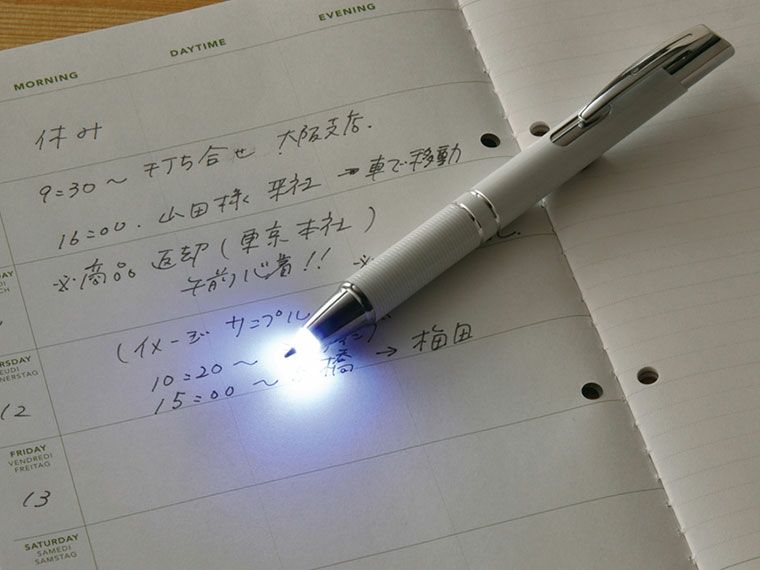 MORNING DAYTIME EVENING
休み
9:30～ 打ち合せ 大阪支店.
16:00. 山田様 来社 → 車で移動
※商品 返却 (東京本社)
午前必着!! ※
(イメージ サンプル
10:20～
15:00～ 橋 → 梅田
12
FRIDAY
VENDREDI
FREITAG
13
SATURDAY
SAMEDI
SAMSTAG